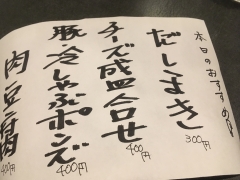 本日のおすすめ
だしまき
300円
チーズ盛合せ
400円
豚・冷しゃぶポンズ
400円
肉豆腐
400円